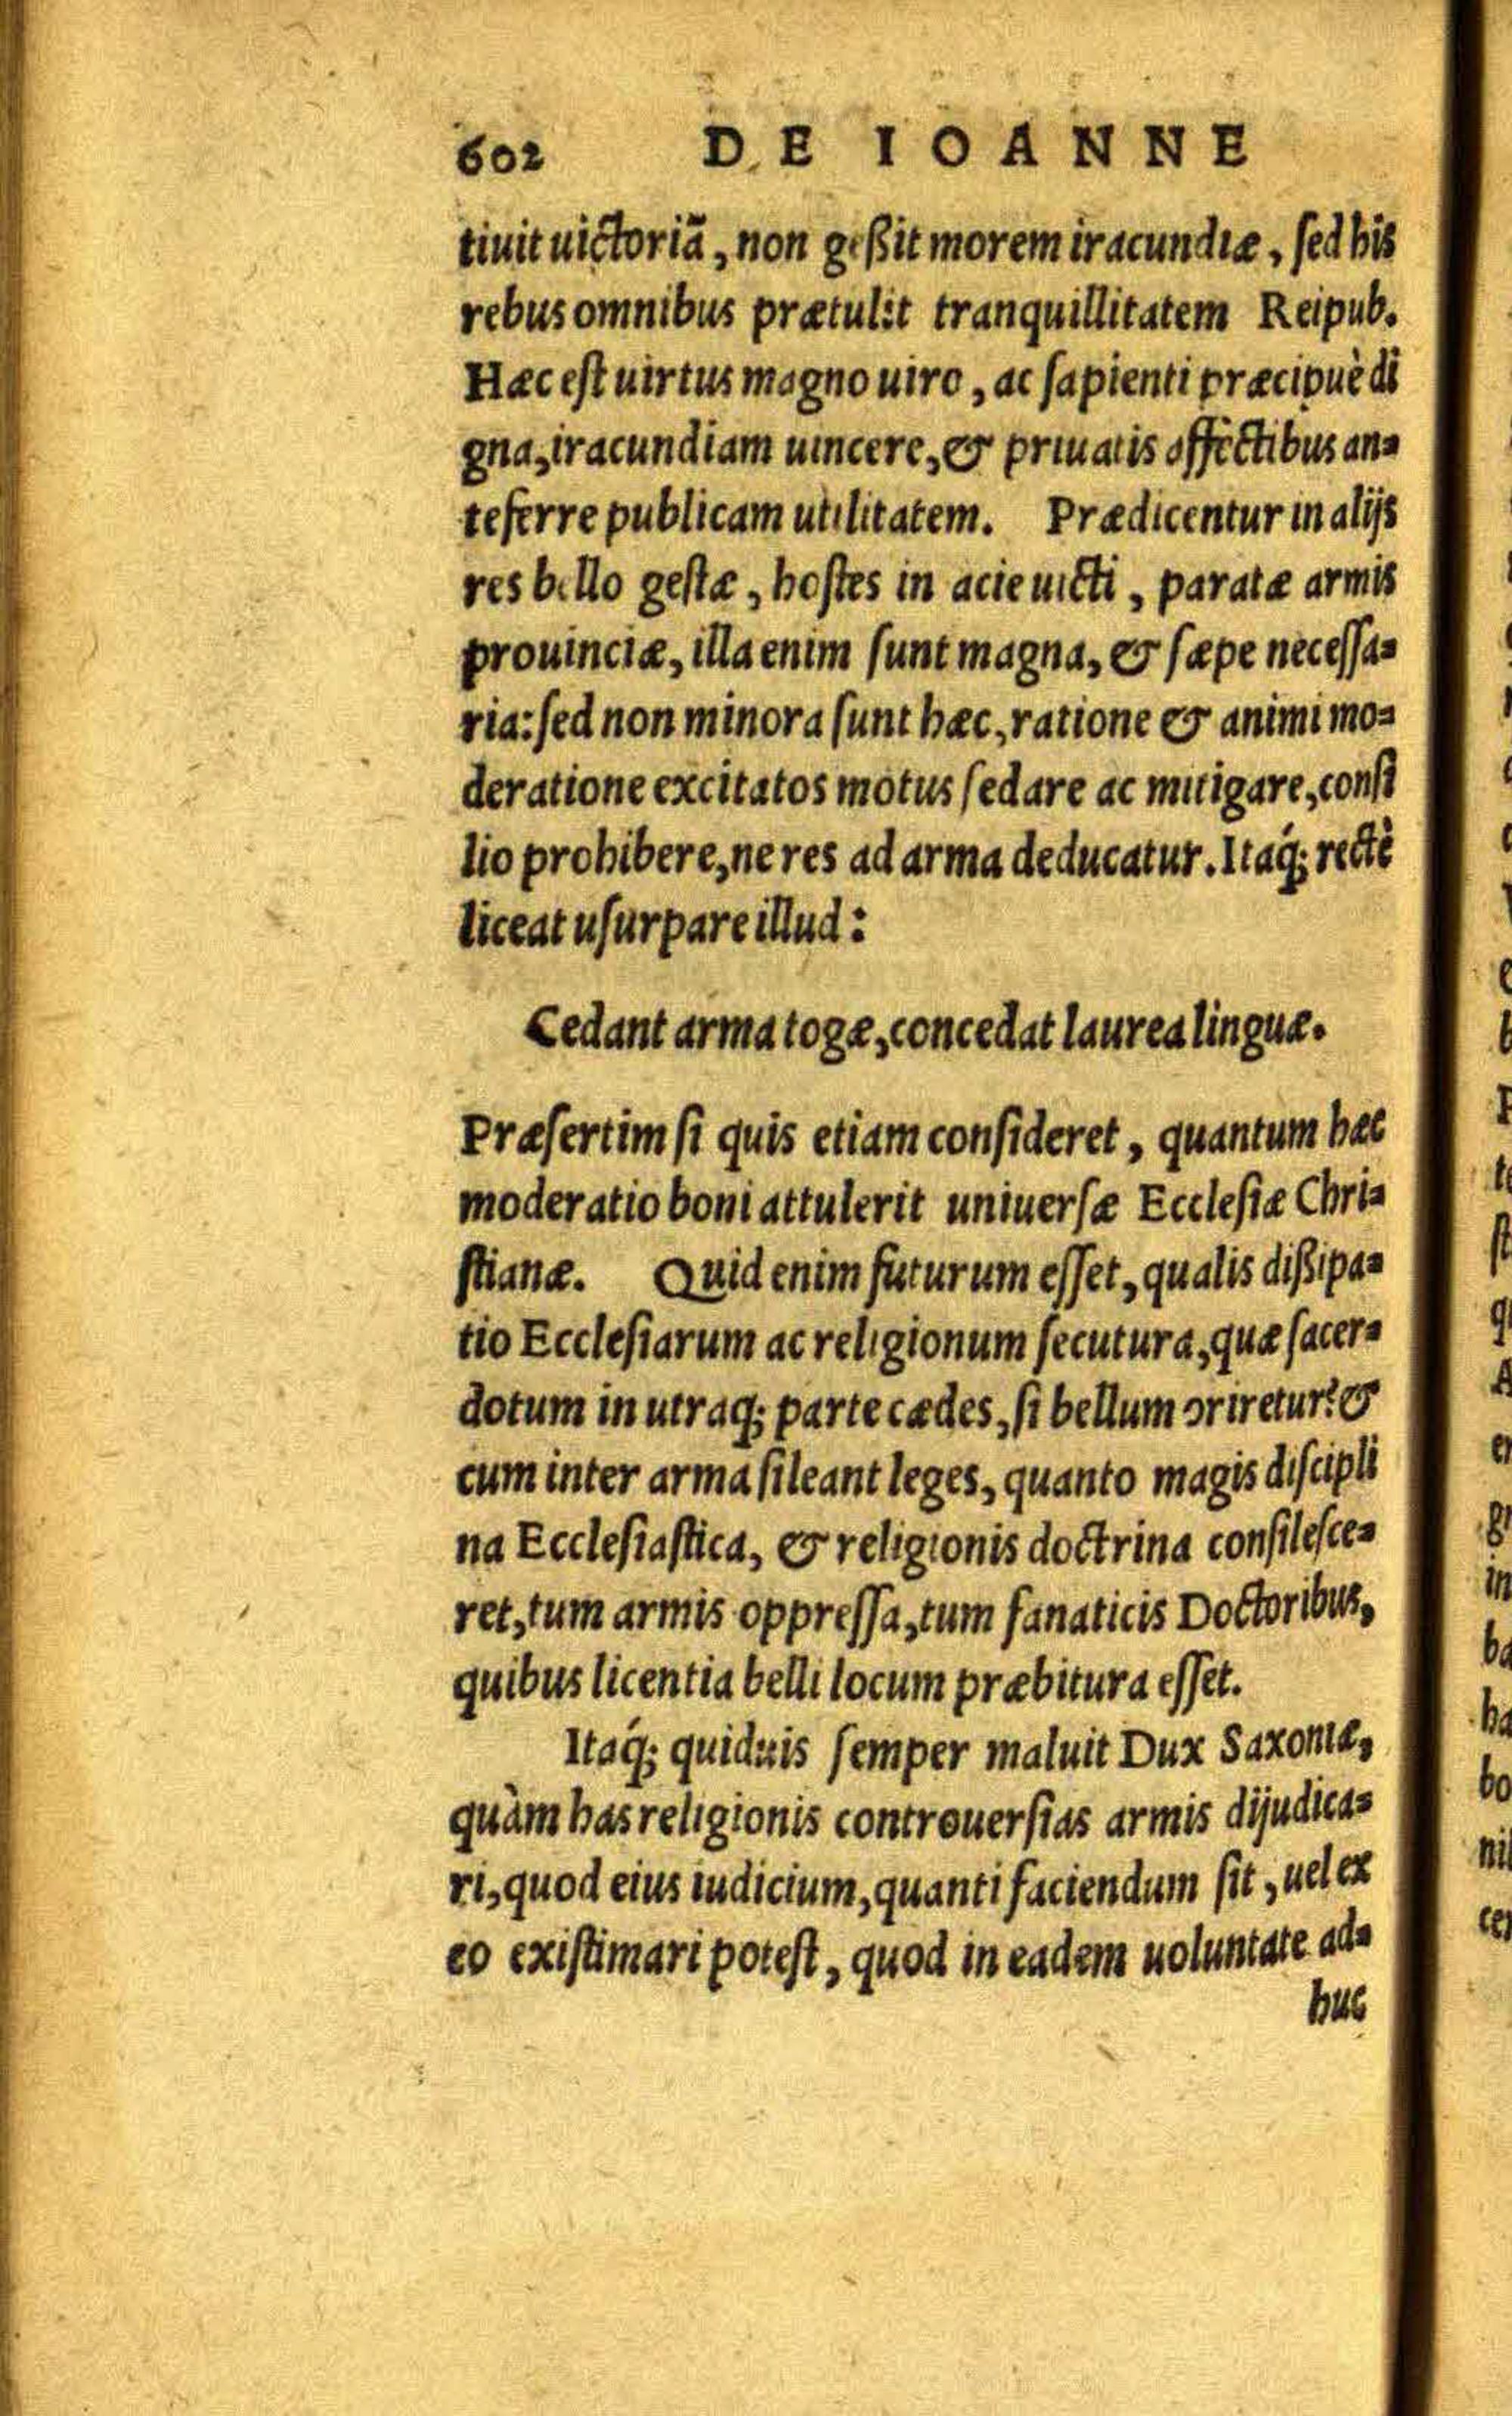 602 DE IOANNE
tiuit uictoriã, non geßit morem iracundiæ, sed his
rebus omnibus prætulit tranquillitatem Reipub.
Hæc est uirtus magno uiro, ac sapienti præcipuè di
gna, iracundiam uincere, & priuatis affectibus an-
teferre publicam utilitatem. Prædicentur in alijs
res bello gestæ, hostes in acie uicti, paratæ armis
prouinciæ, illa enim sunt magna, & sæpe necessa-
ria: sed non minora sunt hæc, ratione & animi mo-
deratione excitatos motus sedare ac mitigare, consi
lio prohibere, ne res ad arma deducatur. Itaq́; rectè
liceat usurpare illud:
Cedant arma togæ, concedat laurea linguæ.
Præsertim si quis etiam consideret, quantum hæc
moderatio boni attulerit uniuersæ Ecclesiæ Chri-
stianæ. Quid enim futurum esset, qualis dißipa-
tio Ecclesiarum ac religionum secutura, quæ sacer-
dotum in utraq; parte cædes, si bellum oriretur? &
cum inter arma sileant leges, quanto magis discipli
na Ecclesiastica, & religionis doctrina consilesce-
ret, tum armis oppressa, tum fanaticis Doctoribus,
quibus licentia belli locum præbitura esset.
Itaq́; quiduis semper maluit Dux Saxoniæ,
quàm has religionis controuersias armis dijudica-
ri, quod eius iudicium, quanti faciendum sit, uel ex
eo existimari potest, quod in eadem uoluntate ad-
huc